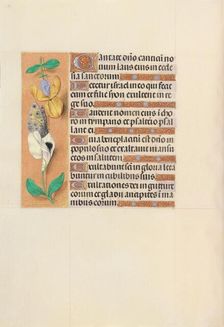 Cantate dño canticū no
num laus eius in eccle
sia sanctorum
Letetur israel in eo qui fecit
eum et filie syon exultent in re
ge suo
Laudent nomen eius i cho
ro in tympano et psalterio psal
lant ei
Quia beneplacitū est dño in
populo suo et exaltauit mansu
etos in salutem
Exultabunt sancti in gloria leta
buntur in cubilibus suis
Exultationes dei in gutture
eorum et gladii ancipites i ma
nibus eorum